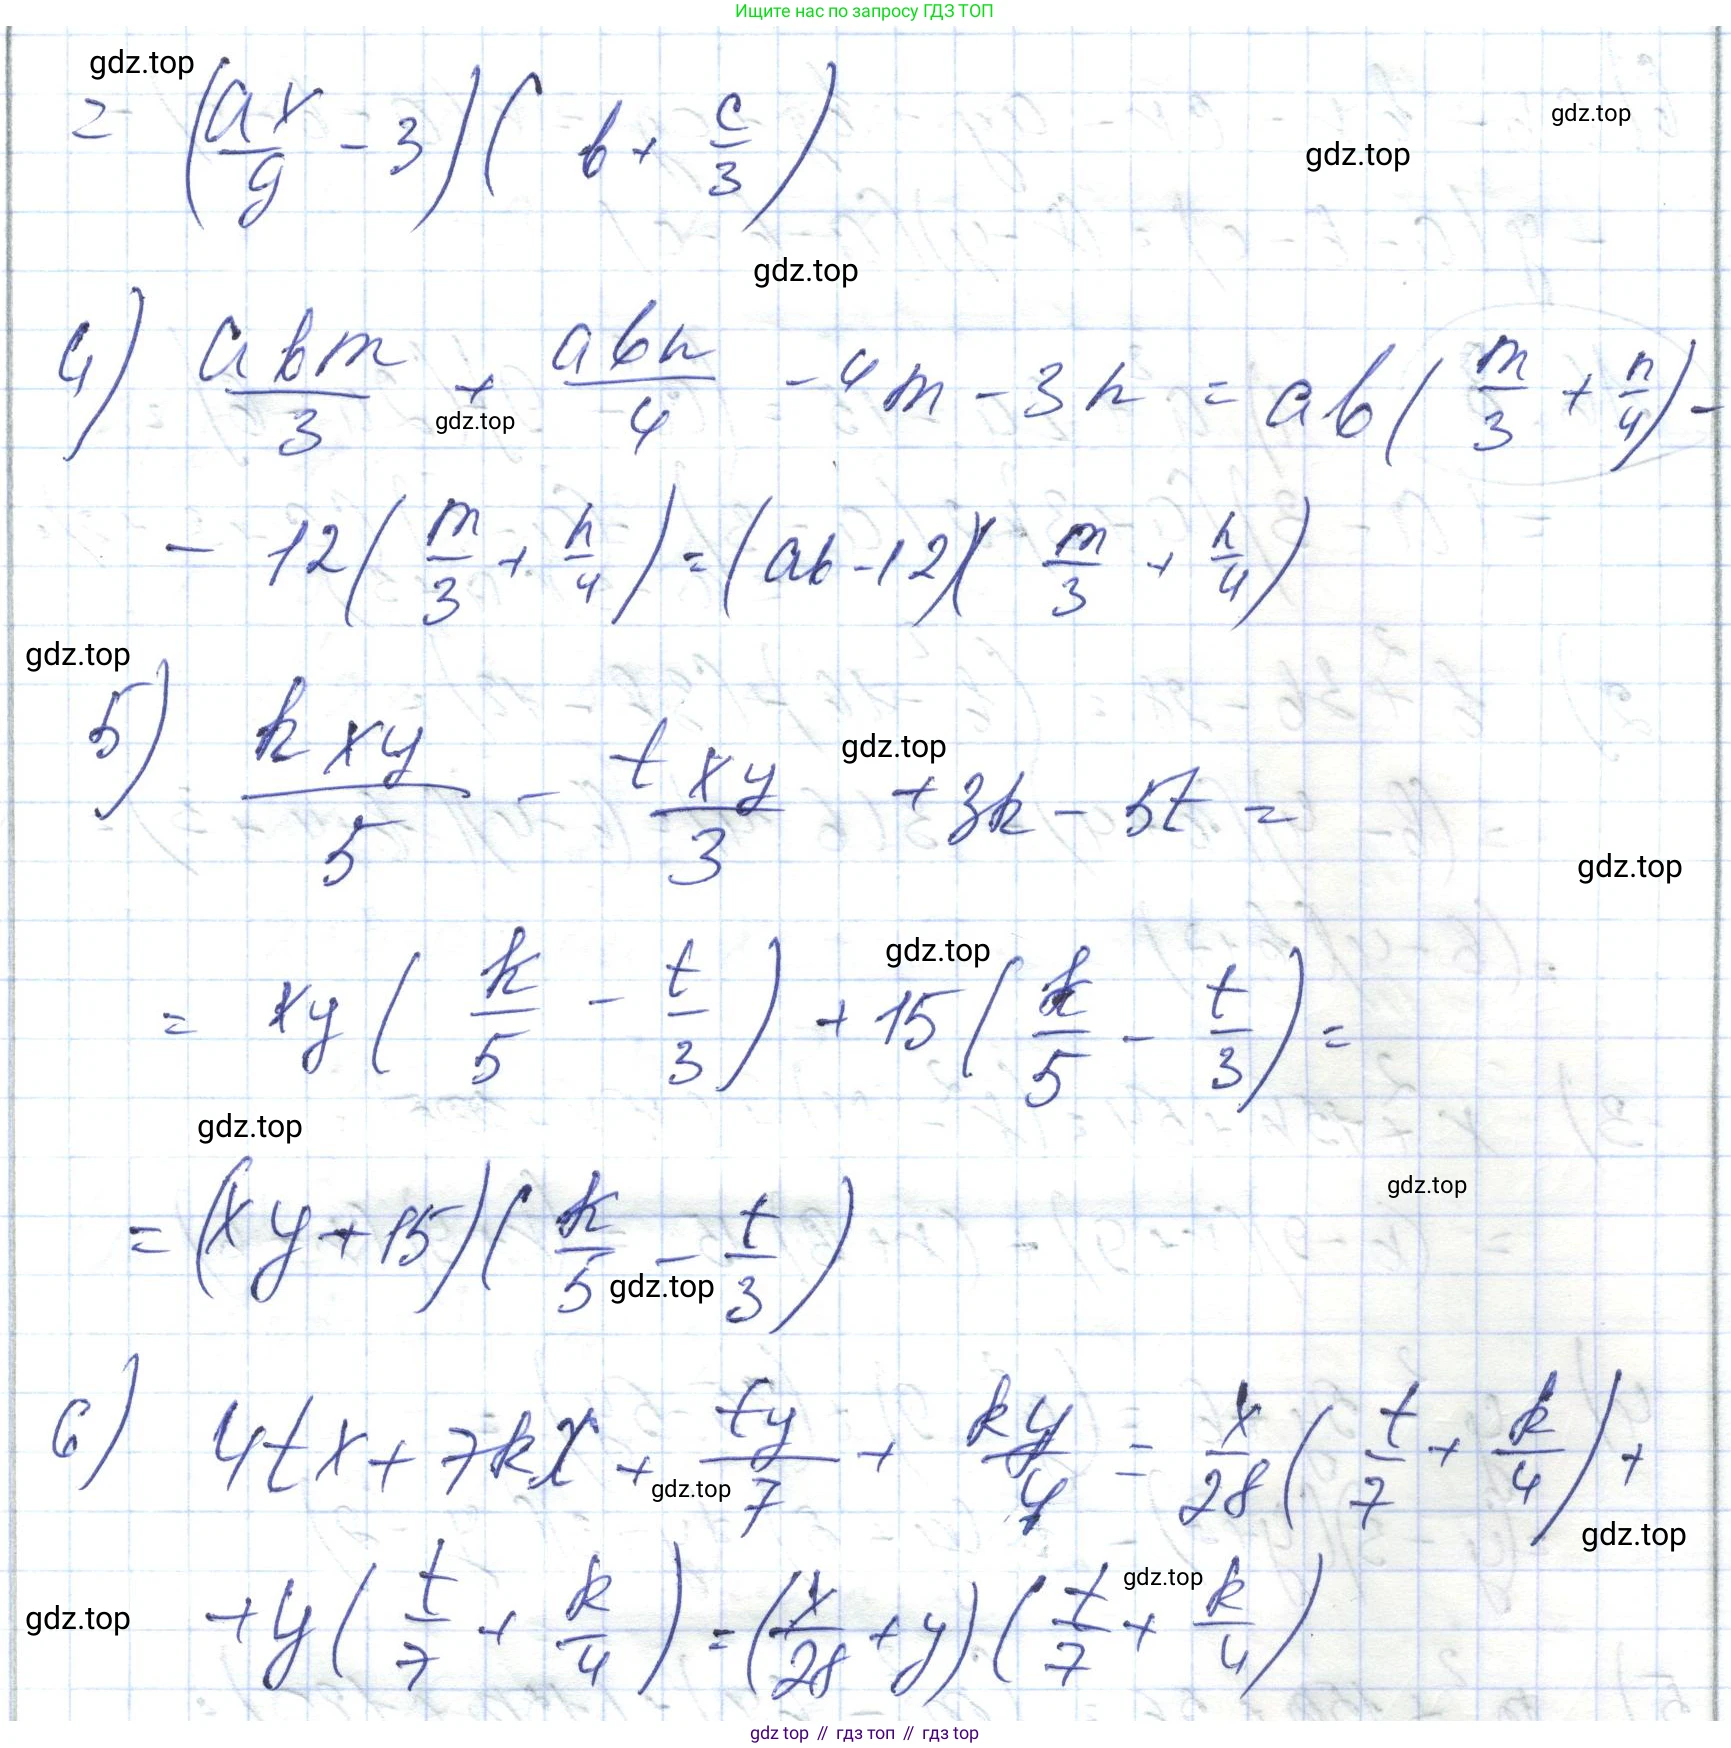 Ищите нас по запросу ГДЗ ТОП
gdz.top
= (ax/9 - 3)( b + c/3 )
gdz.top
gdz.top
gdz.top
4) abm/3 + abn/4 - 4m - 3n = ab( m/3 + n/4 ) -
gdz.top
- 12( m/3 + n/4 ) = (ab - 12)( m/3 + n/4 )
gdz.top
5) kxy/5 - txy/3 + 3k - 5t =
gdz.top
gdz.top
= xy( k/5 - t/3 ) + 15( k/5 - t/3 ) =
gdz.top
gdz.top
= (xy + 15)( k/5 - t/3 )
gdz.top
gdz.top
6) 4tx + 7kx + ty/7 + ky/4 = x/28 ( t/7 + k/4 ) +
gdz.top
gdz.top
+ y( t/7 + k/4 ) = ( x/28 + y )( t/7 + k/4 )
gdz.top
gdz.top
gdz top // гдз топ // гдз top